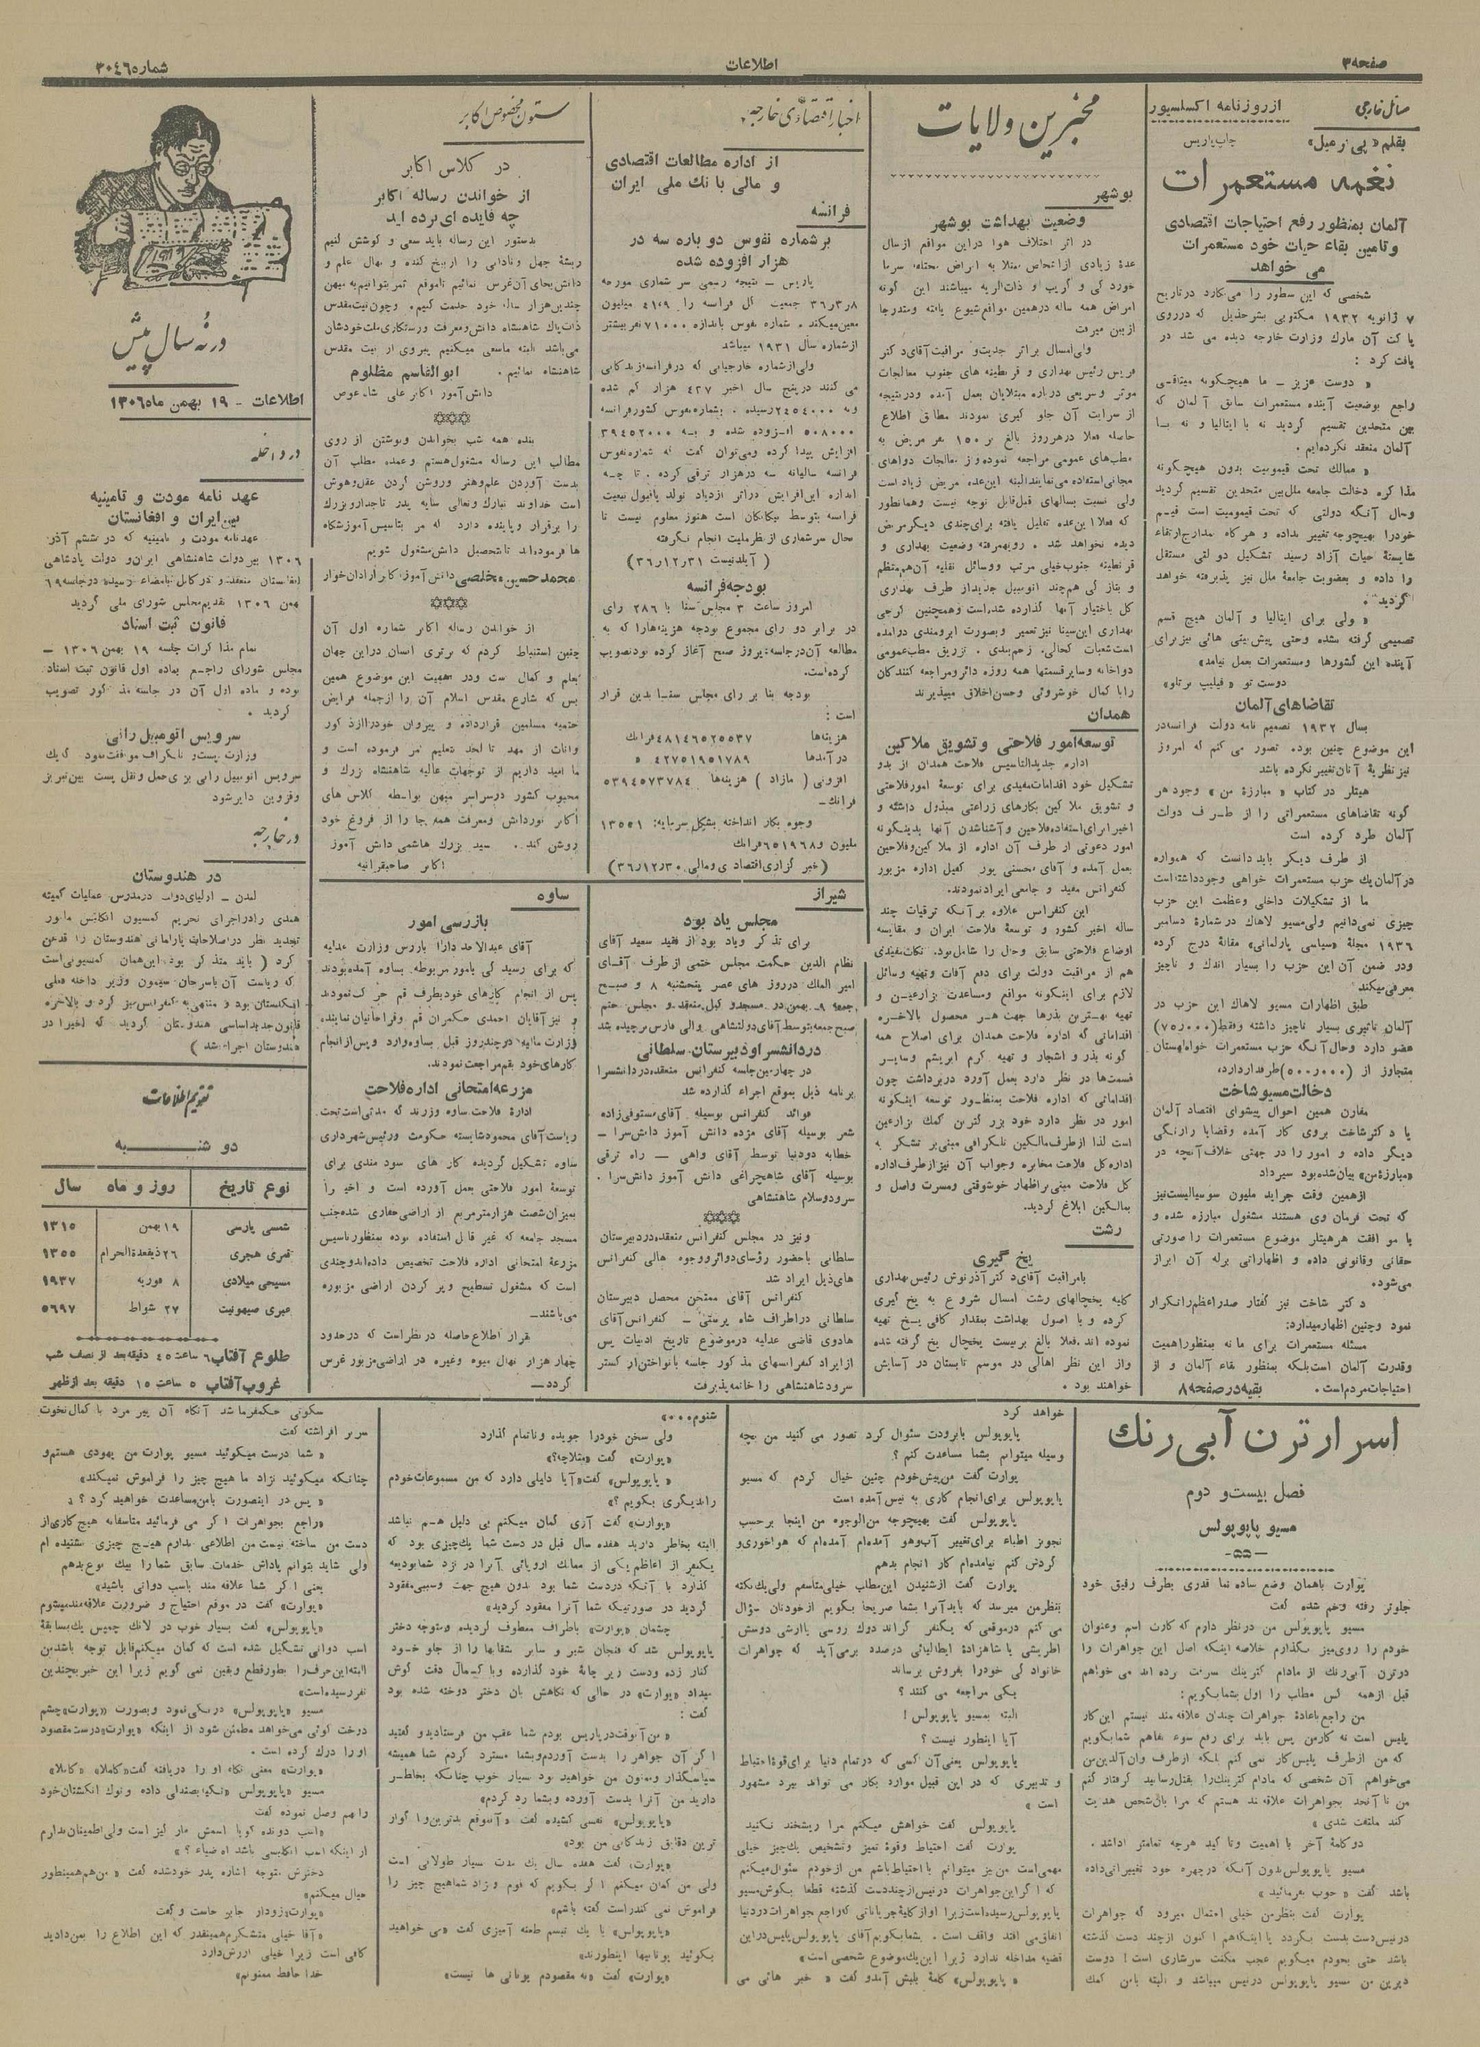 صفحه ۳
اطلاعات
شماره ۳۰۴۶
مسائل خارجی
از روزنامه اکسلسیور
چاپ پاریس
نغمه مستعمرات
آلمان بمنظور رفع احتیاجات اقتصادی
و تامین بقاء حیات خود مستعمرات
می خواهد
شخصی که این سطور را می نگارد در تاریخ
۷ ژانویه ۱۹۳۲ مکتوبی بشرح ذیل که در روی
پاکت آن مارک وزارت خارجه دیده می شد در
یافت کرد :
« دوست عزیز - ما هیچگونه میثاقی
راجع بوضعیت آینده مستعمرات سابق آلمان که
بین متحدین تقسیم گردید نه با ایتالیا و نه با
آلمان منعقد نکرده‌ایم .
« ممالک تحت قیمومیت بدون هیچگونه
مذاکره دخالت جامعه ملل بین متحدین تقسیم گردید
وحال آنکه دولتی که تحت قیمومیت است قیم
خود را بهیچوجه تغییر نداده و هر گاه بمدارج ارتقاء
شایسته حیات آزاد رسید تشکیل دولتی مستقل
را داده و بعضویت جامعهٔ ملل نیز پذیرفته خواهد
گردید» .
« ولی برای ایتالیا و آلمان هیچ قسم
تصمیمی گرفته نشده وحتی پیش بینی هائی نیز برای
آینده این کشورها ومستعمرات بعمل نیامد»
دوست تو « فیلیپ برتلو»
تقاضاهای آلمان
بسال ۱۹۳۲ تصمیم نامه دولت فرانسه در
این موضوع چنین بود. تصور می کنم که امروز
نیز نظریهٔ آنان تغییر نکرده باشد
هیتلر در کتاب « مبارزهٔ من » وجود هر
گونه تقاضاهای مستعمراتی را از طرف دولت
آلمان طرد کرده است
از طرف دیگر باید دانست که همواره
در آلمان یک حزب مستعمرات خواهی وجود داشته است
ما از تشکیلات داخلی وعظمت این حزب
چیزی نمی‌دانیم ولی مسیو لاهاک در شمارهٔ دسامبر
۱۹۳۶ مجلهٔ «سیاسی پارلمانی» مقالهٔ درج کرده
ودر ضمن آن این حزب را بسیار اندک و ناچیز
معرفی میکند
طبق اظهارات مسیو لاهاک این حزب در
آلمان تاثیری بسیار ناچیز داشته وفقط (۷۵٫۰۰۰)
عضو دارد وحال آنکه حزب مستعمرات خواه لهستان
متجاوز از (۵۰۰٫۰۰۰) طرفدار دارد.
دخالت مسیو شاخت
مقارن همین احوال پیشوای اقتصاد آلمان
یا دکتر شاخت بروی کار آمده وقضایا را رنگی
دیگر داده و امور را در جهتی خلاف آنچه در
«مبارزه من» بیان شده بود سیر داد
از همین وقت جراید ملیون سوسیالیست نیز
که تحت فرمان وی هستند مشغول مبارزه شده و
با موافقت هر هیتلر موضوع مستعمرات را صورتی
حقانی وقانونی داده و اظهاراتی برله آن ابراز
می‌شود.
دکتر شاخت نیز گفتار صدراعظم را تکرار
نمود وچنین اظهار میدارد:
مسئله مستعمرات برای ما نه بمنظور اهمیت
وقدرت آلمان است بلکه بمنظور بقاء آلمان و از
احتیاجات مردم است. بقیه در صفحه ۸
مخبرین ولایات
بوشهر
وضعیت بهداشت بوشهر
در اثر اختلاف هوا در این مواقع از سال
عدهٔ زیادی از اشخاص مبتلا به امراض مختلفه سرما
خوردگی و گریپ و ذات‌الریه میباشند این گونه
امراض همه ساله در همین مواقع شیوع یافته ومتدرجا
از بین میرفت
ولی امسال بر اثر جدیت و مراقبت آقای دکتر
رئیس بهداری و قرنطینه های جنوب معالجات
موثر وسریعی درباره مبتلایان بعمل آمده ودرنتیجه
از سرایت آن جلوگیری نمودند مطابق اطلاع
حاصله فعلا در هر روز بالغ بر ۱۵۰ نفر مریض به
مطب‌های عمومی مراجعه نموده و از معالجات دواهای
مجانی استفاده می‌نمایند البته این عده مریض زیاد است
ولی نسبت بسالهای قبل قابل توجه نیست وهمانطور
که فعلا این عده تقلیل یافته برای چندی دیگر مریض
دیده نخواهد شد . رویهمرفته وضعیت بهداری و
قرنطینه جنوب خیلی مرتب ووسائل نقلیه آن هم منظم
و بتازگی هم چند اتومبیل جدید از طرف بهداری
کل باختیار آنها گذارده شده است وهمچنین
بهداری ابن سینا نیز تعمیر وبصورت آبرومندی در آمده
است شعبات کحالی، زخم‌بندی ، تزریق مطب عمومی
دواخانه وسایر قسمتها همه روزه دائر ومراجعه کنندگان
را با کمال خوشروئی وحسن اخلاق میپذیرند
همدان
توسعه امور فلاحتی و تشویق ملاکین
اداره جدیدالتاسیس فلاحت همدان از بدو
تشکیل خود اقدامات مفیدی برای توسعهٔ امور فلاحتی
و تشویق ملاکین بکارهای زراعتی مبذول داشته و
اخیر برای استفاده فلاحین و آشنا شدن آنها بدینگونه
امور دعوتی از طرف آن اداره از ملاکین وفلاحین
بعمل آمده و آقای محسنی پور کفیل اداره مزبور
کنفرانس مفید و جامعی ایراد نمودند.
این کنفرانس علاوه بر آنکه ترقیات چند
ساله اخیر کشور و توسعهٔ فلاحت ایران و مقایسه
اوضاع فلاحتی سابق وحال را شامل بود، نکات مفیدی
هم از مراقبت دولت برای دفع آفات وتهیه وسائل
لازم برای اینگونه مواقع ومساعدت بزارعین و
تهیه بهترین بذرها جهت هر محصول بالاخره
اقداماتی که اداره فلاحت همدان برای اصلاح همه
گونه بذر و اشجار و تهیه کرم ابریشم وسایر
قسمت‌ها در نظر دارد بعمل آورد در برداشت چون
اقداماتی که اداره فلاحت بمنظور توسعه اینگونه
امور در نظر دارد خود بزرگترین کمک بزارعین
است لذا از طرف مالکین تلگرافی مبنی بر تشکر به
اداره کل فلاحت مخابره وجواب آن نیز از طرف اداره
کل فلاحت مبنی بر اظهار خوشوقتی ومسرت واصل و
بمالکین ابلاغ گردید.
رشت
یخ گیری
بامراقبت آقای دکتر آذرنوش رئیس بهداری
کلیه یخچالهای رشت امسال شروع به یخ گیری
کرده و با اصول بهداشت بمقدار کافی یخ تهیه
نموده اند. فعلا بالغ بر بیست یخچال یخ گرفته شده
واز این نظر اهالی در موسم تابستان در آسایش
خواهند بود .
اخبار اقتصادی خارجه
از اداره مطالعات اقتصادی
و مالی بانک ملی ایران
فرانسه
بر شماره نفوس دو باره سه در
هزار افزوده شده
پاریس - نتیجه رسمی سر شماری مورخه
۸٫۳٫۳۶ جمعیت کل فرانسه را ۴۱٫۹ میلیون
معین میکند . شماره نفوس باندازه ۷۱۰۰۰ نفر بیشتر
از شماره سال ۱۹۳۱ میباشد
ولی از شماره خارجیانی که در فرانسه زندگانی
می کنند در پنج سال اخیر ۴۳۷ هزار کم شده
وبه ۲٫۴۵۴٫۰۰۰ رسیده . بشماره نفوس کشور فرانسه
۵۰۸۰۰۰ افزوده شده و به ۳۹٫۴۵۲٫۰۰۰
افزایش پیدا کرده ومی‌توان گفت که شماره نفوس
فرانسه سالیانه سه در هزار ترقی کرده . تا چه
اندازه این افزایش در اثر ازدیاد تولد یا قبول تبعیت
فرانسه بتوسط بیگانگان است هنوز معلوم نیست تا
بحال سر شماری از نظر ملیت انجام نگرفته
( ۳۶٫۱۲٫۳۱ )
بودجه فرانسه
امروز ساعت ۳ مجلس سنا با ۲۸۶ رای
در برابر دو رای مجموع بودجه هزینه‌ها را که به
مطالعه آن در جلسه پریروز صبح آغاز کرده بود تصویب
کرده است.
بودجه بنا بر رای مجلس سنا بدین قرار
است :
هزینه‌ها ۴۸۱۴۶۵۲۵۵۳۷ فرانک
درآمدها ۴۲۷۵۱۹۵۱۷۸۹ «
افزونی ( مازاد ) هزینه‌ها ۵۳۹۴۵۷۳۷۸۴
فرانک-
وجوه بکار انداخته بشکل سرمایه: ۱۳۵۵۱
ملیون و ۶۵۱۹۶۸ فرانک
(خبر گزاری اقتصادی ومالی ۳۶٫۱۲٫۳۰)
شیراز
مجلس یاد بود
برای تذکر ویاد بود از فقید سعید آقای
نظام الدین حکمت مجلس ختمی از طرف آقای
امیر الملک در روز های عصر پنجشنبه ۸ و صبح
جمعه ۹ بهمن در مسجد وکیل منعقد و مجلس ختم
صبح جمعه بتوسط آقای دولتشاهی والی فارس برچیده شد
در دانشسرا و دبیرستان سلطانی
در چهارمین جلسه کنفرانس منعقده در دانشسرا
برنامه ذیل بموقع اجراء گذارده شد
فوائد کنفرانس بوسیله آقای مستوفی زاده
شعر بوسیله آقای مژده دانش آموز دانش سرا -
خطابه دو دنیا توسط آقای واهی - راه ترقی
بوسیله آقای شاهچراغی دانش آموز دانش سرا .
سرود وسلام شاهنشاهی
ونیز در مجلس کنفرانس منعقده در دبیرستان
سلطانی باحضور رؤسای دوائر و وجوه اهالی کنفرانس
های ذیل ایراد شد
کنفرانس آقای ممتحن محصل دبیرستان
سلطانی در اطراف شاه پرستی - کنفرانس آقای
هادوی قاضی عدلیه در موضوع تاریخ ادبیات پس
از ایراد کنفرانسهای مذکور جلسه با نواختن ارکستر
سرود شاهنشاهی را خاتمه پذیرفت
ستون مخصوص اکابر
در کلاس اکابر
از خواندن رساله اکابر
چه فایده ای برده اید
بدستور این رساله باید سعی و کوشش کنیم
ریشهٔ جهل ونادانی را از بیخ کنده و نهال علم و
دانش بجای آن غرس نمائیم تا موقع ثمر بتوانیم به میهن
چندین هزار ساله خود خدمت کنیم. وچون نیت مقدس
ذات پاک شاهنشاه دانش ومعرفت ورستکاری ملت خودشان
می‌باشد البته ماسعی میکنیم پیروی از نیت مقدس
شاهنشاه نمائیم . ابوالقاسم مظلوم
دانش آموز اکابر علی شاه عوض
بنده همه شب بخواندن ونوشتن از روی
مطالب این رساله مشغول هستم وعمده مطلب آن
بدست آوردن علم وهنر وروشن کردن عقل وهوش
است خداوند تبارک وتعالی سایه پدر تاجدار وبزرگ
را برقرار وپاینده دارد که امر بتاسیس آموزشگاه
ها فرموده‌اند تا بتحصیل دانش مشغول شویم
محمد حسین مخلصی دانش آموز اکابر آرادان خوار
از خواندن رساله اکابر شماره اول آن
چنین استنباط کردم که برتری انسان در این جهان
بعلم و کمال ست ودر اهمیت این موضوع همین
بس که شارع مقدس اسلام آن را از جمله فرایض
حتمیه مسلمین قرار داده و پیروان خود را از ذکور
واناث از مهد تا لحد بتعلیم امر فرموده است و
ما امید داریم از توجهات عالیه شاهنشاه بزرگ و
محبوب کشور در سراسر میهن بواسطه کلاس های
اکابر نور دانش ومعرفت همه جا را از فروغ خود
روشن کند . سید بزرگ هاشمی دانش آموز
اکابر صاحبقرانیه
ساوه
بازرسی امور
آقای عبدالاحد دارا بازرس وزارت عدلیه
که برای رسیدگی بامور مربوطه بساوه آمده بودند
پس از انجام کارهای خود بطرف قم حرکت نمودند
و نیز آقایان احمدی حکمران قم وفراهانیان نماینده
وزارت مالیه در چند روز قبل بساوه وارد و پس از انجام
کارهای خود بقم مراجعت نمودند.
مزرعه امتحانی اداره فلاحت
ادارهٔ فلاحت ساوه وزرند که مدتی است تحت
ریاست آقای محمود شایسته حکومت ورئیس شهرداری
ساوه تشکیل گردیده کار های سود مندی برای
توسعهٔ امور فلاحتی بعمل آورده است و اخیرا
بمیزان شصت هزار متر مربع از اراضی حفاری شده جنب
مسجد جامعه که غیر قابل استفاده بوده بمنظور تاسیس
مزرعهٔ امتحانی اداره فلاحت تخصیص داده اند وچندی
است که مشغول تسطیح و پر کردن اراضی مزبوره
می‌باشند-
بقرار اطلاع حاصله در نظر است که در حدود
چهار هزار نهال میوه وغیره در اراضی مزبور غرس
گردد-
در نه سال پیش
اطلاعات - ۱۹ بهمن ماه ۱۳۰۶
در داخله
عهد نامه مودت و تامینیه
بین ایران و افغانستان
عهدنامه مودت و تامینیه که در ششم آذر
۱۳۰۶ بین دولت شاهنشاهی ایران و دولت پادشاهی
افغانستان منعقد و در کابل بامضاء رسیده در جلسه ۱۹
بهمن ۱۳۰۶ تقدیم مجلس شورای ملی گردید
قانون ثبت اسناد
تمام مذاکرات جلسه ۱۹ بهمن ۱۳۰۶ -
مجلس شورای راجع بماده اول قانون ثبت اسناد
بوده و ماده اول آن در جلسه مذکور تصویب
گردید .
سرویس اتومبیل رانی
وزارت پست و تلگراف موافقت نمود که یک
سرویس اتومبیل رانی برای حمل ونقل پست بین تبریز
وقزوین دایر شود
در خارجه
در هندوستان
لندن - اولیای دولت در مدرس عملیات کمیته
هندی را در اجرای تحریم کمسیون انگلیس مامور
تجدید نظر در اصلاحات پارلمانی هندوستان را قدغن
کرد ( باید متذکر بود این همان کمسیونی است
که ریاست آن باسرجان سیمون وزیر داخله فعلی
انگلستان بود و منتهی به کنفرانس میز گرد و بالاخره
قانون جدید اساسی هندوستان گردید که اخیرا در
هندوستان اجرا شد )
تقویم اطلاعات
دو شنبه
نوع تاریخ
روز و ماه
سال
شمسی پارسی
۱۹ بهمن
۱۳۱۵
قمری هجری
۲۶ ذیقعدة الحرام
۱۳۵۵
مسیحی میلادی
۸ فوریه
۱۹۳۷
عبری صیهونیت
۲۷ شواط
۵۶۹۷
طلوع آفتاب ۶ ساعت ۴۵ دقیقه بعد از نصف شب
غروب آفتاب ۵ ساعت ۱۵ دقیقه بعد از ظهر
اسرار ترن آبی رنگ
فصل بیست و دوم
مسیو پاپوپولس
پوآرت باهمان وضع ساده نما قدری بطرف رفیق خود
جلوتر رفته وخم شده گفت
مسیو پاپوپولس من در نظر دارم که کارت اسم وعنوان
خودم را روی میز بگذارم خلاصه اینکه اصل این جواهرات را
در ترن آبی رنگ از مادام کترینک سرقت برده اند می خواهم
قبل از همه این مطلب را اول بشما بگویم :
من راجع باعادهٔ جواهرات چندان علاقه مند نیستم این کار
پلیس است نه کار من پس باید برای رفع سوء تفاهم شما بگویم
که من از طرف پلیس کار نمی کنم بلکه از طرف وان آلدین من
می‌خواهم آن شخصی که مادام کترینک را بقتل رسانید گرفتار کنم
من تا آنحد بجواهرات علاقه مند هستم که مرا بآن شخص هدایت
کند ملتفت شدی »
در کلمهٔ آخر با اهمیت وتاکید هر چه تمامتر ادا شد.
مسیو پاپوپولس بدون آنکه در چهره خود تغییراتی داده
باشد گفت « خوب بفرمائید »
پوآرت گفت بنظر من خیلی احتمال میرود که جواهرات
در نیس دست بدست بگردد یا اینکه هم اکنون از چند دست گذشته
باشد حتی بخودم میگویم عجب مکنت سرشاری است ! دوست
دیرین من مسیو پاپوپولس در نیس میباشد و البته بامن کمک
خواهد کرد
پاپوپولس بابرودت سئوال کرد تصور می کنید من بچه
وسیله میتوانم بشما مساعدت کنم ؟
پوآرت گفت من پیش خودم چنین خیال کردم که مسیو
پاپوپولس برای انجام کاری به نیس آمده است
پاپوپولس گفت بهیچوجه من الوجوه من اینجا برحسب
تجویز اطباء برای تغییر آب وهوا آمده‌ام آمده‌ام که هواخوری و
گردش کنم نیامده‌ام کار انجام بدهم
پوآرت گفت از شنیدن این مطلب خیلی متاسفم ولی یک نکته
بنظر من میرسد که باید آنرا بشما صریحا بگویم از خودتان سؤال
می کنم در موقعی که یکنفر گراند دوک روسی یا ارشی دوشس
اطریشی یا شاهزادهٔ ایطالیائی در صدد برمی‌آید که جواهرات
خانوادگی خود را بفروش برساند
بکی مراجعه می کنند ؟
البته بمسیو پاپوپولس !
آیا اینطور نیست ؟
پاپوپولس یعنی آن کسی که در تمام دنیا برای قوهٔ احتیاط
و تدبیری که در این قبیل موارد بکار می تواند ببرد مشهور
است »
پاپوپولس گفت خواهش میکنم مرا ریشخند نکنید
پوآرت گفت احتیاط وقوهٔ تمیز وتشخیص یک چیز خیلی
مهمی است من نیز میتوانم با احتیاط باشم من از خودم سئوال میکنم
که اگر این جواهرات در نیس از چند دست گذشته قطعا بگوش مسیو
پاپوپولس رسیده است زیرا او از کلیهٔ جریاناتی که راجع جواهرات در دنیا
اتفاق می افتد واقف است . بشما بگویم آقای پاپوپولس پلیس در این
قضیه مداخله ندارد زیرا این یک موضوع شخصی است»
« پاپوپولس» کلمهٔ بلبش آمد و گفت « خبر هائی می
شنوم...»
ولی سخن خود را جویده وناتمام گذارد
«پوآرت» گفت «مثلا چه؟»
«پاپوپولس» گفت «آیا دلیلی دارد که من مسموعات خودم
را بدیگری بگویم ؟»
«پوآرت» گفت آری گمان میکنم بی دلیل هم نباشد
البته بخاطر دارید هفده سال قبل در دست شما یک چیزی بود که
یکنفر از اعاظم یکی از ممالک اروپائی آنرا در نزد شما بودیعه
گذارد با آنکه در دست شما بود بدون هیچ جهت وسببی مفقود
گردید در صورتیکه شما آنرا مفقود کردید»
چشمان «پوآرت» باطراف معطوف گردیده ومتوجه دختر
پاپوپولس شد که فنجان شیر و سایر بشقابها را از جلو خود
کنار زده ودست زیر چانهٔ خود گذارده وبا کمال دقت گوش
میداد «پوآرت» در حالی که نگاهش بان دختر دوخته شده بود
گفت :
«من آنوقت در پاریس بودم شما عقب من فرستادید و گفتید
اگر آن جواهر را بدست آوردم وبشما مسترد کردم شما همیشه
سپاسگذار وممنون من خواهید بود بسیار خوب چنانکه بخاطر
دارید من آنرا بدست آورده وبشما رد کردم»
«پاپوپولس» نفسی کشیده گفت «آنموقع بدترین و ناگوار
ترین دقایق زندگانی من بود»
«پوآرت» گفت هفده سال یک مدت بسیار طولانی است
ولی من گمان میکنم اگر بگویم که قوم و نژاد شما هیچ چیز را
فراموش نمی کند راست گفته باشم»
«پاپوپولس» با یک تبسم طعنه آمیزی گفت «می خواهید
بگوئید یونانیها اینطورند»
«پوآرت» گفت «نه مقصودم یونانی ها نیست»
سکوتی حکمفرما شد آنگاه آن پیر مرد با کمال نخوت
سر بر افراشته گفت
« شما درست میگوئید مسیو پوآرت من یهودی هستم و
چنانکه میگوئید نژاد ما هیچ چیز را فراموش نمیکند»
«پس در اینصورت بامن مساعدت خواهید کرد ؟ »
«راجع بجواهرات اگر می فرمائید متاسفانه هیچ کاری از
دست من ساخته نیست من اطلاعی ندارم هیچ چیزی نشنیده ام
ولی شاید بتوانم پاداش خدمات سابق شما را بیک نوع بدهم
یعنی اگر شما علاقه مند باسب دوانی باشید»
«پوآرت» گفت در موقع احتیاج و ضرورت علاقه مند میشوم
«پاپوپولس» گفت بسیار خوب در لانک چمپس یک مسابقهٔ
اسب دوانی تشکیل شده است که گمان میکنم قابل توجه باشد من
البته این حرف را بطور قطع ویقین نمی گویم زیرا این خبر بچندین
نفر رسیده است»
مسیو «پاپوپولس» درنگی نمود وبصورت «پوآرت» چشم
دوخت گوئی می‌خواهد مطمئن شود از اینکه «پوآرت» درست مقصود
او را درک کرده است .
«پوآرت» معنی نگاه او را دریافته گفت «کاملا» «کاملا»
مسیو «پاپوپولس» تکیه بصندلی داده ونوک انگشتان خود
را بهم وصل نموده گفت
«اسب دونده گویا اسمش مارکیز است ولی اطمینان ندارم
از اینکه اسب انگلیسی باشد اه ضیاء ؟ »
دخترش متوجه اشاره پدر خود شده گفت « من هم همینطور
خیال میکنم»
«پوآرت» زود از جایش خاست و گفت
«آقا خیلی متشکرم همینقدر که این اطلاع را بمن دادید
کافی است زیرا خیلی ارزش دارد
خدا حافظ ممنونم»